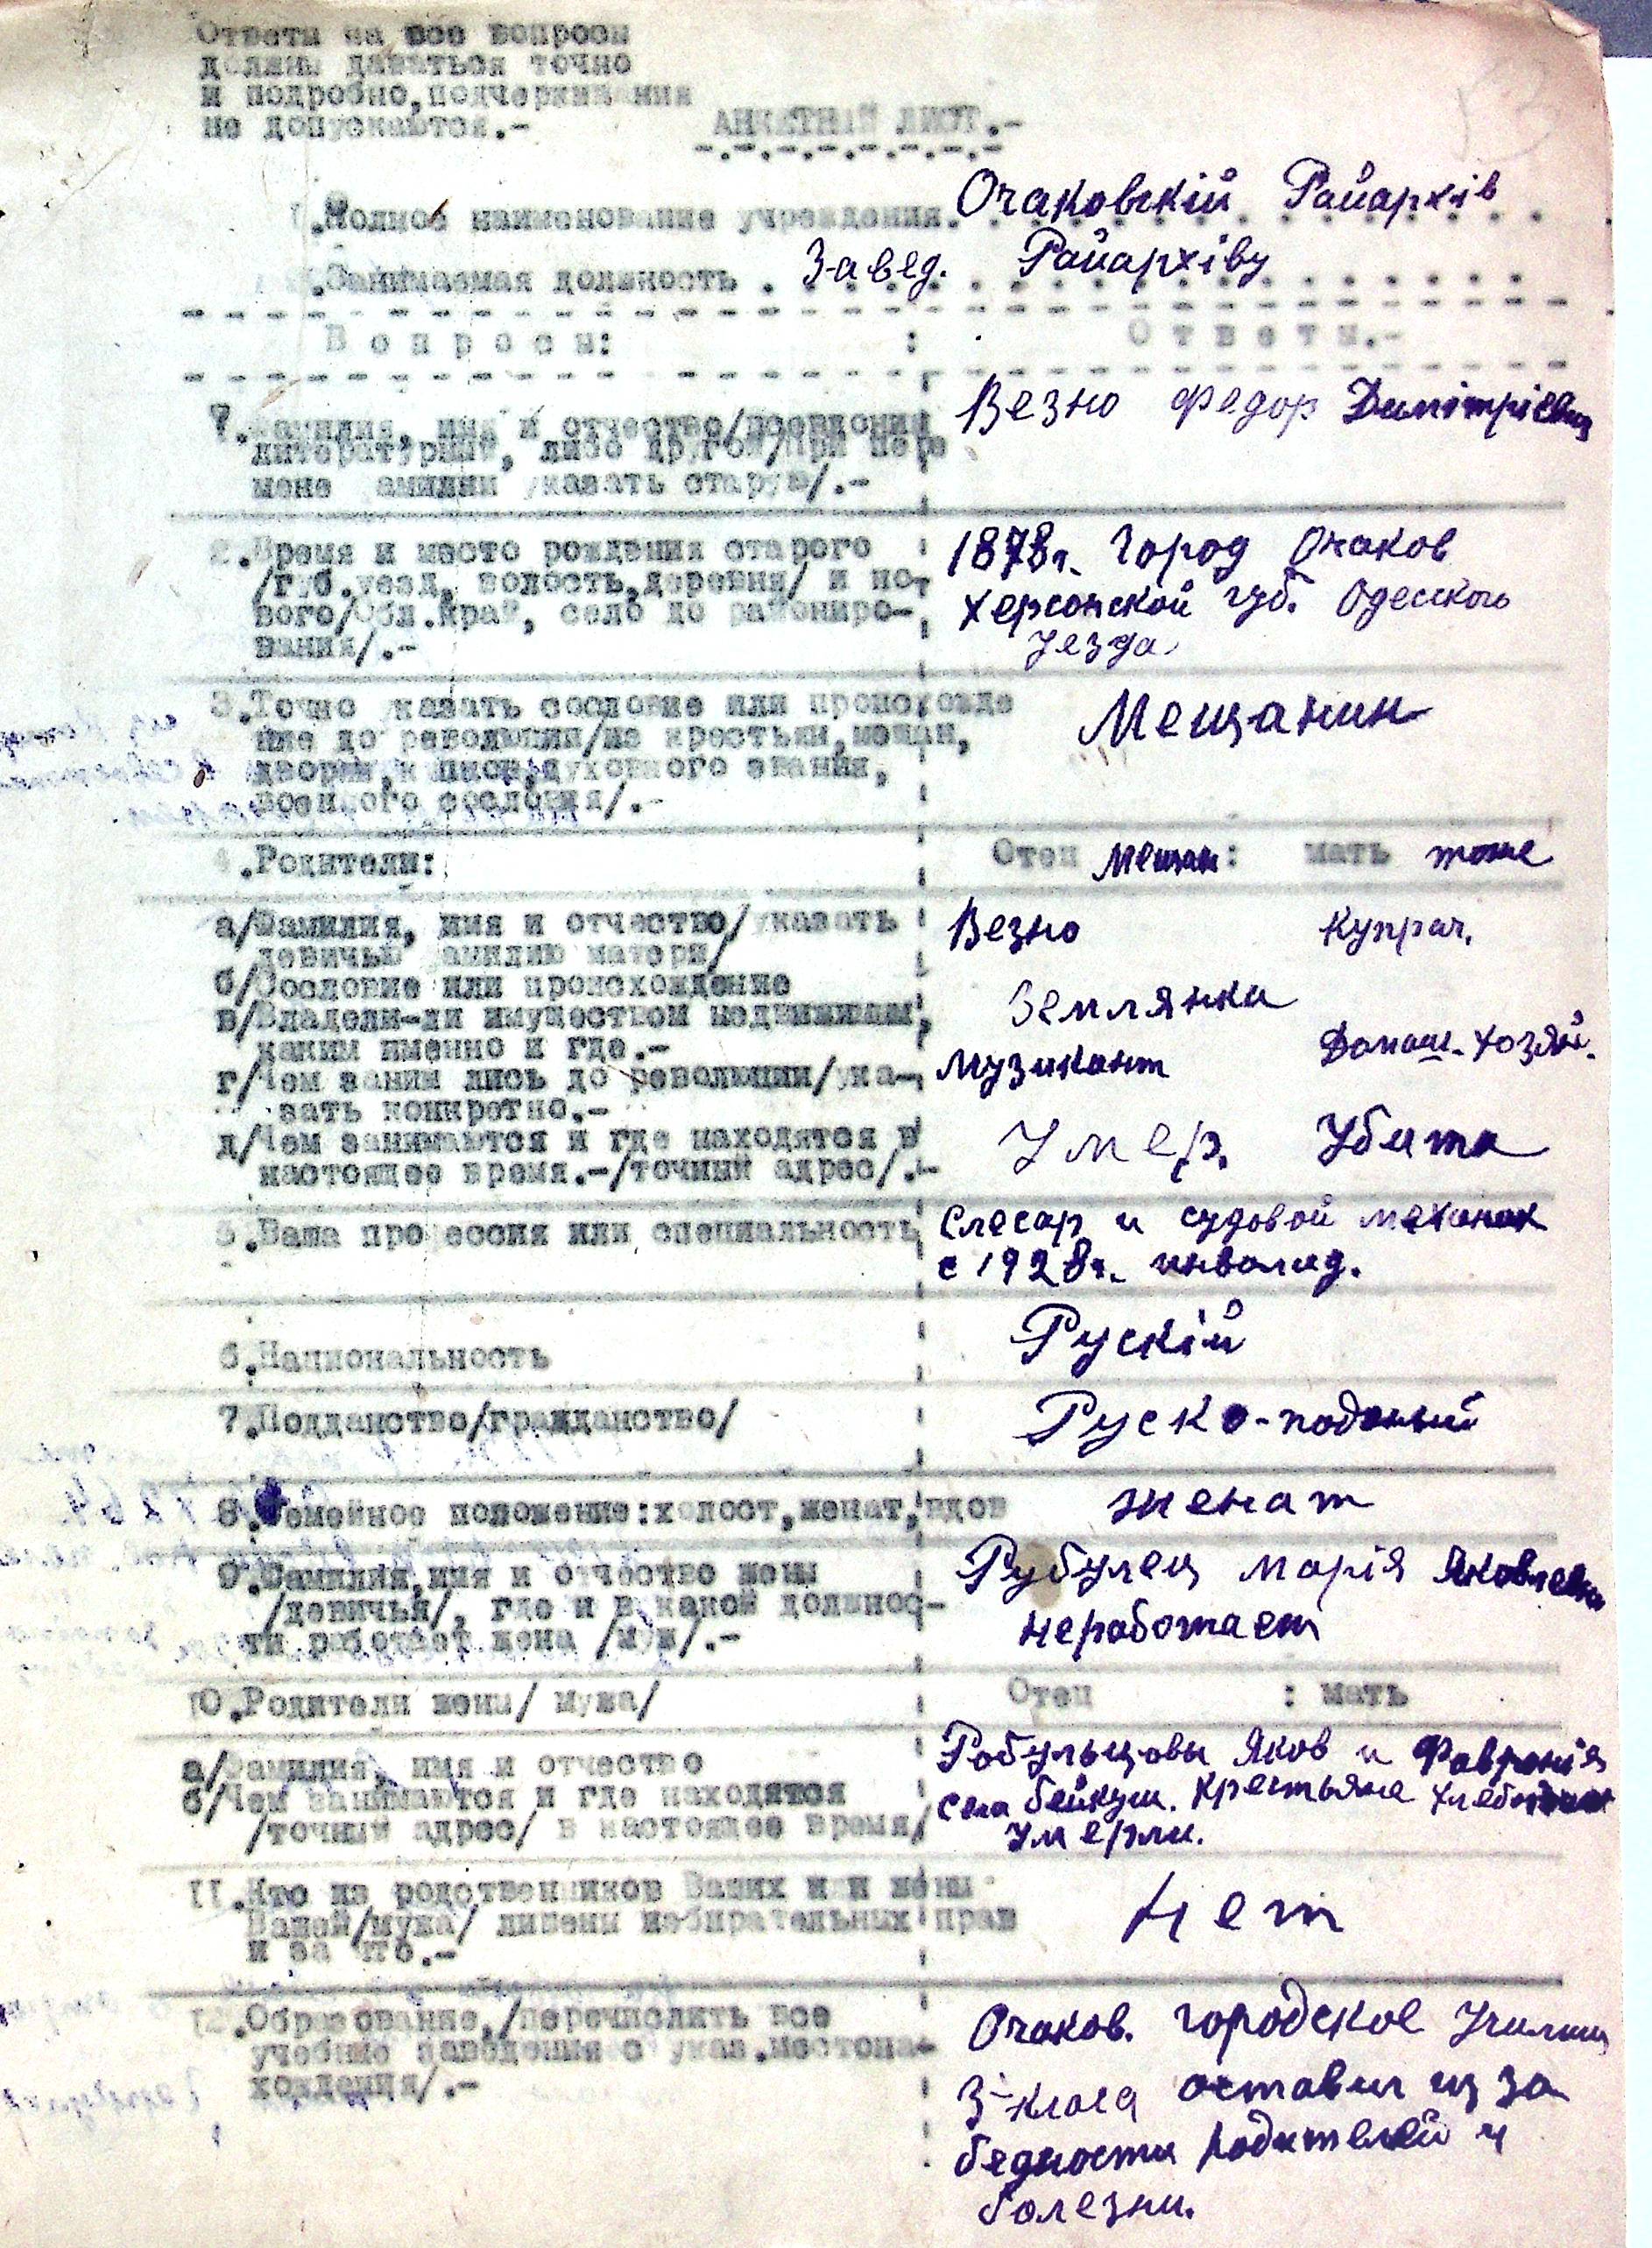 Ответы на все вопросы
должны даваться точно
и подробно, подчеркивания
не допускаются.-
АНКЕТНЫЙ ЛИСТ.-
1. Полное наименование учреждения. Очаковскій Райархів
2. Занимаемая должность . Завед. Райархіву
Вопросы: : Ответы.-
1. Фамилия, имя и отчество/псевдоним Везно Федор Димітріевич
литературный, либо другой/при пере
мене фамилии указать старую/.-
2. Время и место рождения старого 1878г. Город Очаков
/губ.уезд, волость, деревня/ и но- Херсонской губ. Одесского
вого/Обл.край, село до райониро- Уезда
вания/.-
3. Точно указать сословие или происхожде Мещанин
ние до революции/из крестьян, мещан,
дворян, купцов, духовного звания,
военного сословия/.-
4. Родители: Отец мещан: мать тоже
а/Фамилия, имя и отчество/указать Везно Купрач.
девичью фамилию матери/
б/Сословие или происхождение
в/Владели-ли имуществом недвижимым, Землянка
каким именно и где.-
г/Чем занимались до революции/ука- Музикант Домаш. хозяй.
зать конкретно.-
д/Чем занимаются и где находятся в Умер. Убита
настоящее время.-/точный адрес/.-
5. Ваша профессия или специальность Слесар и судовой механик
с 1928г. инвалид.
6. Национальность Рускій
7. Подданство/гражданство/ Руско-поданый
8. Семейное положение: холост, женат, вдов женат
9. Фамилия, имя и отчество жены Рубулец Марія Яковлевна
/девичья/, где и в какой должнос- неработает
ти работает жена /муж/.-
10. Родители жены/ мужа/ Отец : мать
а/Фамилия, имя и отчество Робульцовы Яков и Февронія
б/Чем занимаются и где находятся села бейкуш. Крестьяне
/точный адрес/ в настоящее время/ Умерли.
11. Кто из родственников Ваших или жены Нет
Вашей/мужа/ лишены избирательных прав
и за что.-
12. Образование,/перечислить все Очаков. городское Училищ
учебные заведения с указ.местона-
хождения/.- 3-класа оставил из за
бедности родителей и
болезни.